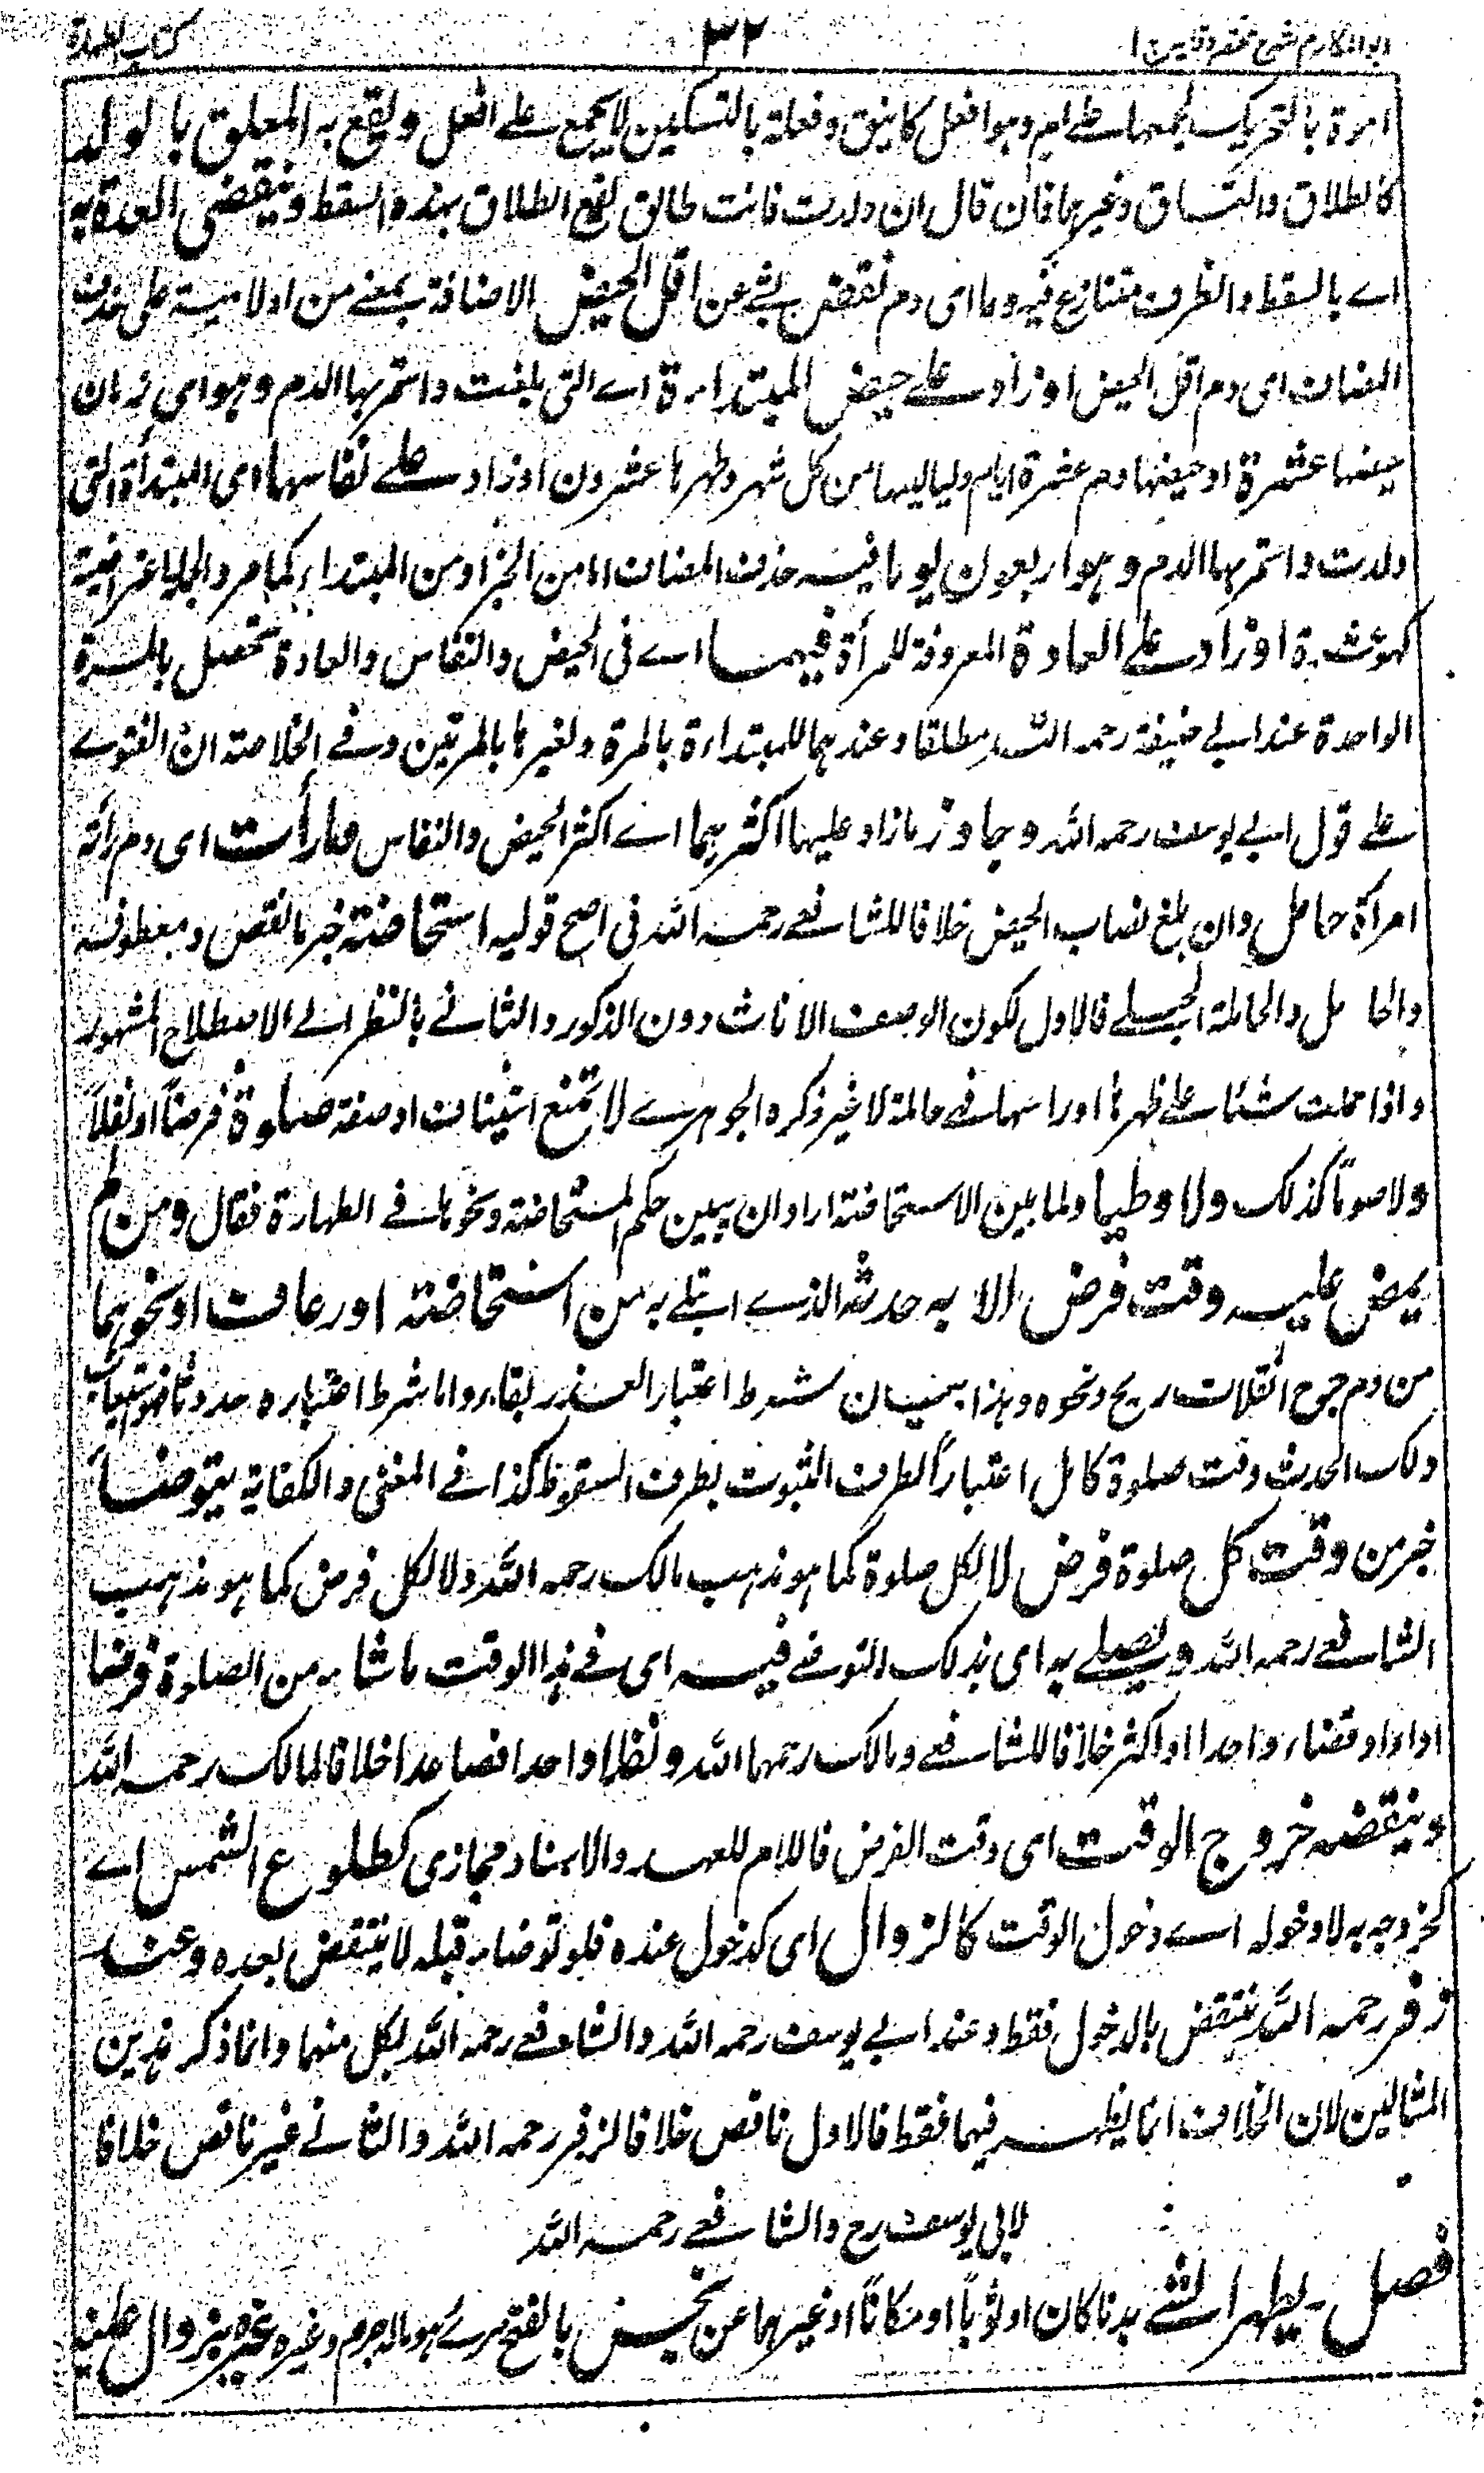 ابو المكارم شرح مختصر وقايه ج ١ ٣٢ كتاب الطهارة
امرة بالتحريك لجمعها على ام وهو افعل كاينق وفعلة بالتسكين لا يجمع على افعل ويقع به المعلق بالولد
كالطلاق والعتاق وغيرهما فان قال ان ولدت فانت طالق يقع الطلاق بهذه السقط وينقضى العدة به
اے بالسقط والظرف متنازع فيه وما اى دم نقص بشئ عن اقل الحيض الاضافة بمعنے من اولامية على حذف
المضاف اى دم اقل الحيض او زاد علے حيض المبتداءة اے التى بلغت واستمر بها الدم وهو اى زمان
حيضها عشرة او حيضها دم عشرة ايام ولياليها من كل شهر وطهرها عشرون او زاد علے نفاسها اى المبتدأة التى
ولدت واستمر بها الدم وهو اربعون يوما فيه حذف المضاف اما من الخبر او من المبتداء كما مر والجملة اعتراضية
كهو عشرة او زاد علے العادة المعروفة للمرأة فيهما اے فى الحيض والنفاس والعادة تحصل بالمرة
الواحدة عند ابى حنيفة رحمه الله مطلقا وعندهما للمبتداءة بالمرة ولغيرها بالمرتين وفے الخلاصة ان الفتوے
علے قول ابى يوسف رحمه الله وجاوز مازاد عليها اكثرهما اے اكثر الحيض والنفاس ومارأت اى دم رأته
امرأة حامل وان بلغ نصاب الحيض خلافا للشافعے رحمه الله فى اصح قوليه استحاضة خبر ما نقص ومعطوفه
والحامل والحاملة الحبلے فالاول لكون الوصف الاناث دون الذكور والثانے بالنظر الى الاصطلاح المشهور
واذا حملت شئا علے ظهرها او راسها فهے حاملة لا غير ذكره الجوهرے لا تمنع استيناف او صفة صلوة فرضاً او نفلاً
ولا صوماً كذلك ولا وطيا ولما بين الاستحاضة اراد ان يبين حكم المستحاضة ونحوها فے الطهارة فقال ومن لم
يمض عليه وقت فرض الا به حدثه الذے ابتلے به من استحاضة او رعاف او نحوهما
من دم جرح انفلات ريح ونحوه وهذا بيان شرط اعتبار العذر بقاء واما شرط اعتباره حدوثا فهو استيعاب
ذلك الحدث وقت صلوة كامل اعتباراً لطرف الثبوت بطرف السقوط كذا فے المغنى والكفاية يتوضأ
خبر من وقت كل صلوة فرض لا لكل صلوة كما هو مذهب مالك رحمه الله ولا لكل فرض كما هو مذهب
الشافعے رحمه الله ويصلے به اى بذلك التوضے فيه اى فے هذا الوقت ما شاء من الصلوة فرضا
اداء او قضاء واحدا او اكثر خلافا للشافعے ومالك رحمهما الله ونفلا واحدا فصاعدا خلافا لمالك رحمه الله
وينقضه خروج الوقت اى وقت الفرض فاللام للعهد والاسناد مجازى كطلوع الشمس اے
كخروجه به لا دخوله اے دخول الوقت كالزوال اى كدخول عنده فلو توضاء قبله لا ينتقض بعده وعند
زفر رحمه الله ينتقض بالدخول فقط وعند ابى يوسف رحمه الله والشافعے رحمه الله بكل منهما وانما ذكر هذين
المثالين لان الخلاف انما يظهر فيهما فقط فالاول ناقص خلافا لزفر رحمه الله والثانے غير ناقص خلافا
لابى يوسف رح والشافعے رحمه الله
فصل يطهر الشے بدنا كان او ثوباً او مكاناً او غيرهما عن نجس بالفتح مرئے هو ماله جرم وغيره غيره بزوال عينه